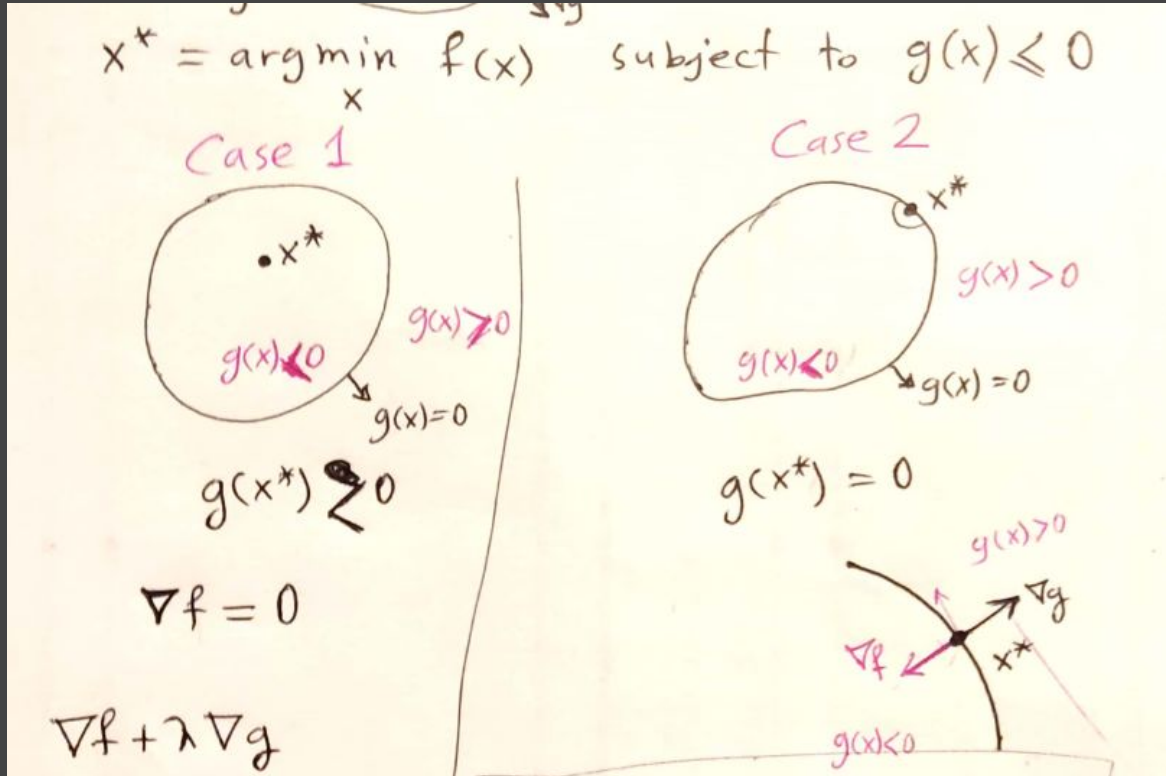 x* = argmin f(x) subject to g(x) ⩽ 0
x
Case 1
x*
g(x)<0
g(x)>0
g(x)=0
g(x*) 0
∇f = 0
∇f + λ∇g
Case 2
x*
g(x) > 0
g(x)<0
g(x) = 0
g(x*) = 0
g(x)>0
∇g
∇f
x*
g(x)<0